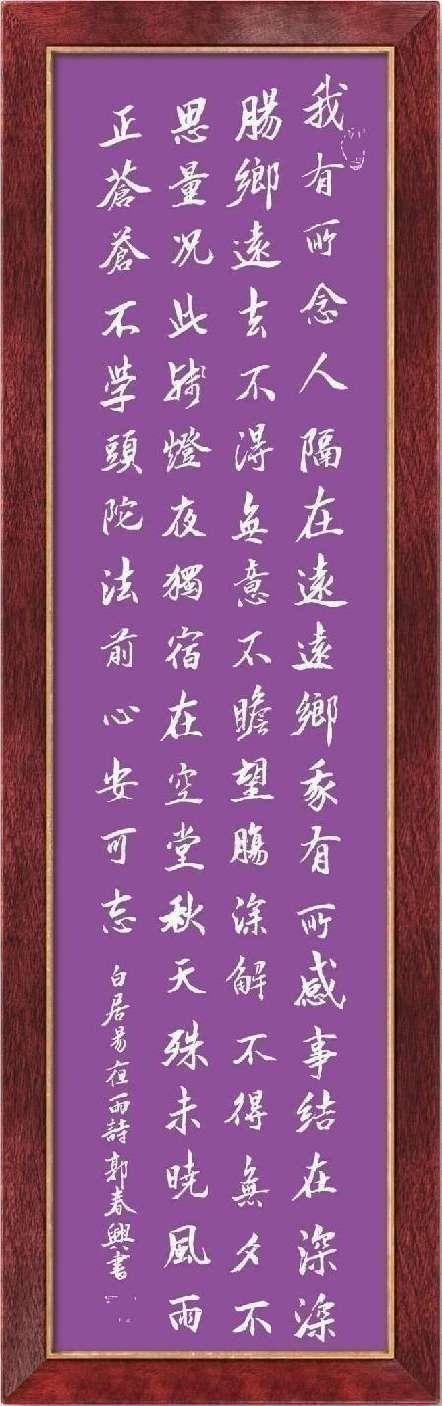 我有所念人隔在遠遠鄉我有所感事結在深深
腸鄉遠去不得無意不瞻望腸深解不得無夕不
思量况此殘燈夜獨宿在空堂秋天殊未曉風雨
正蒼蒼不學頭陀法前心安可忘
白居易夜雨詩郭春興書